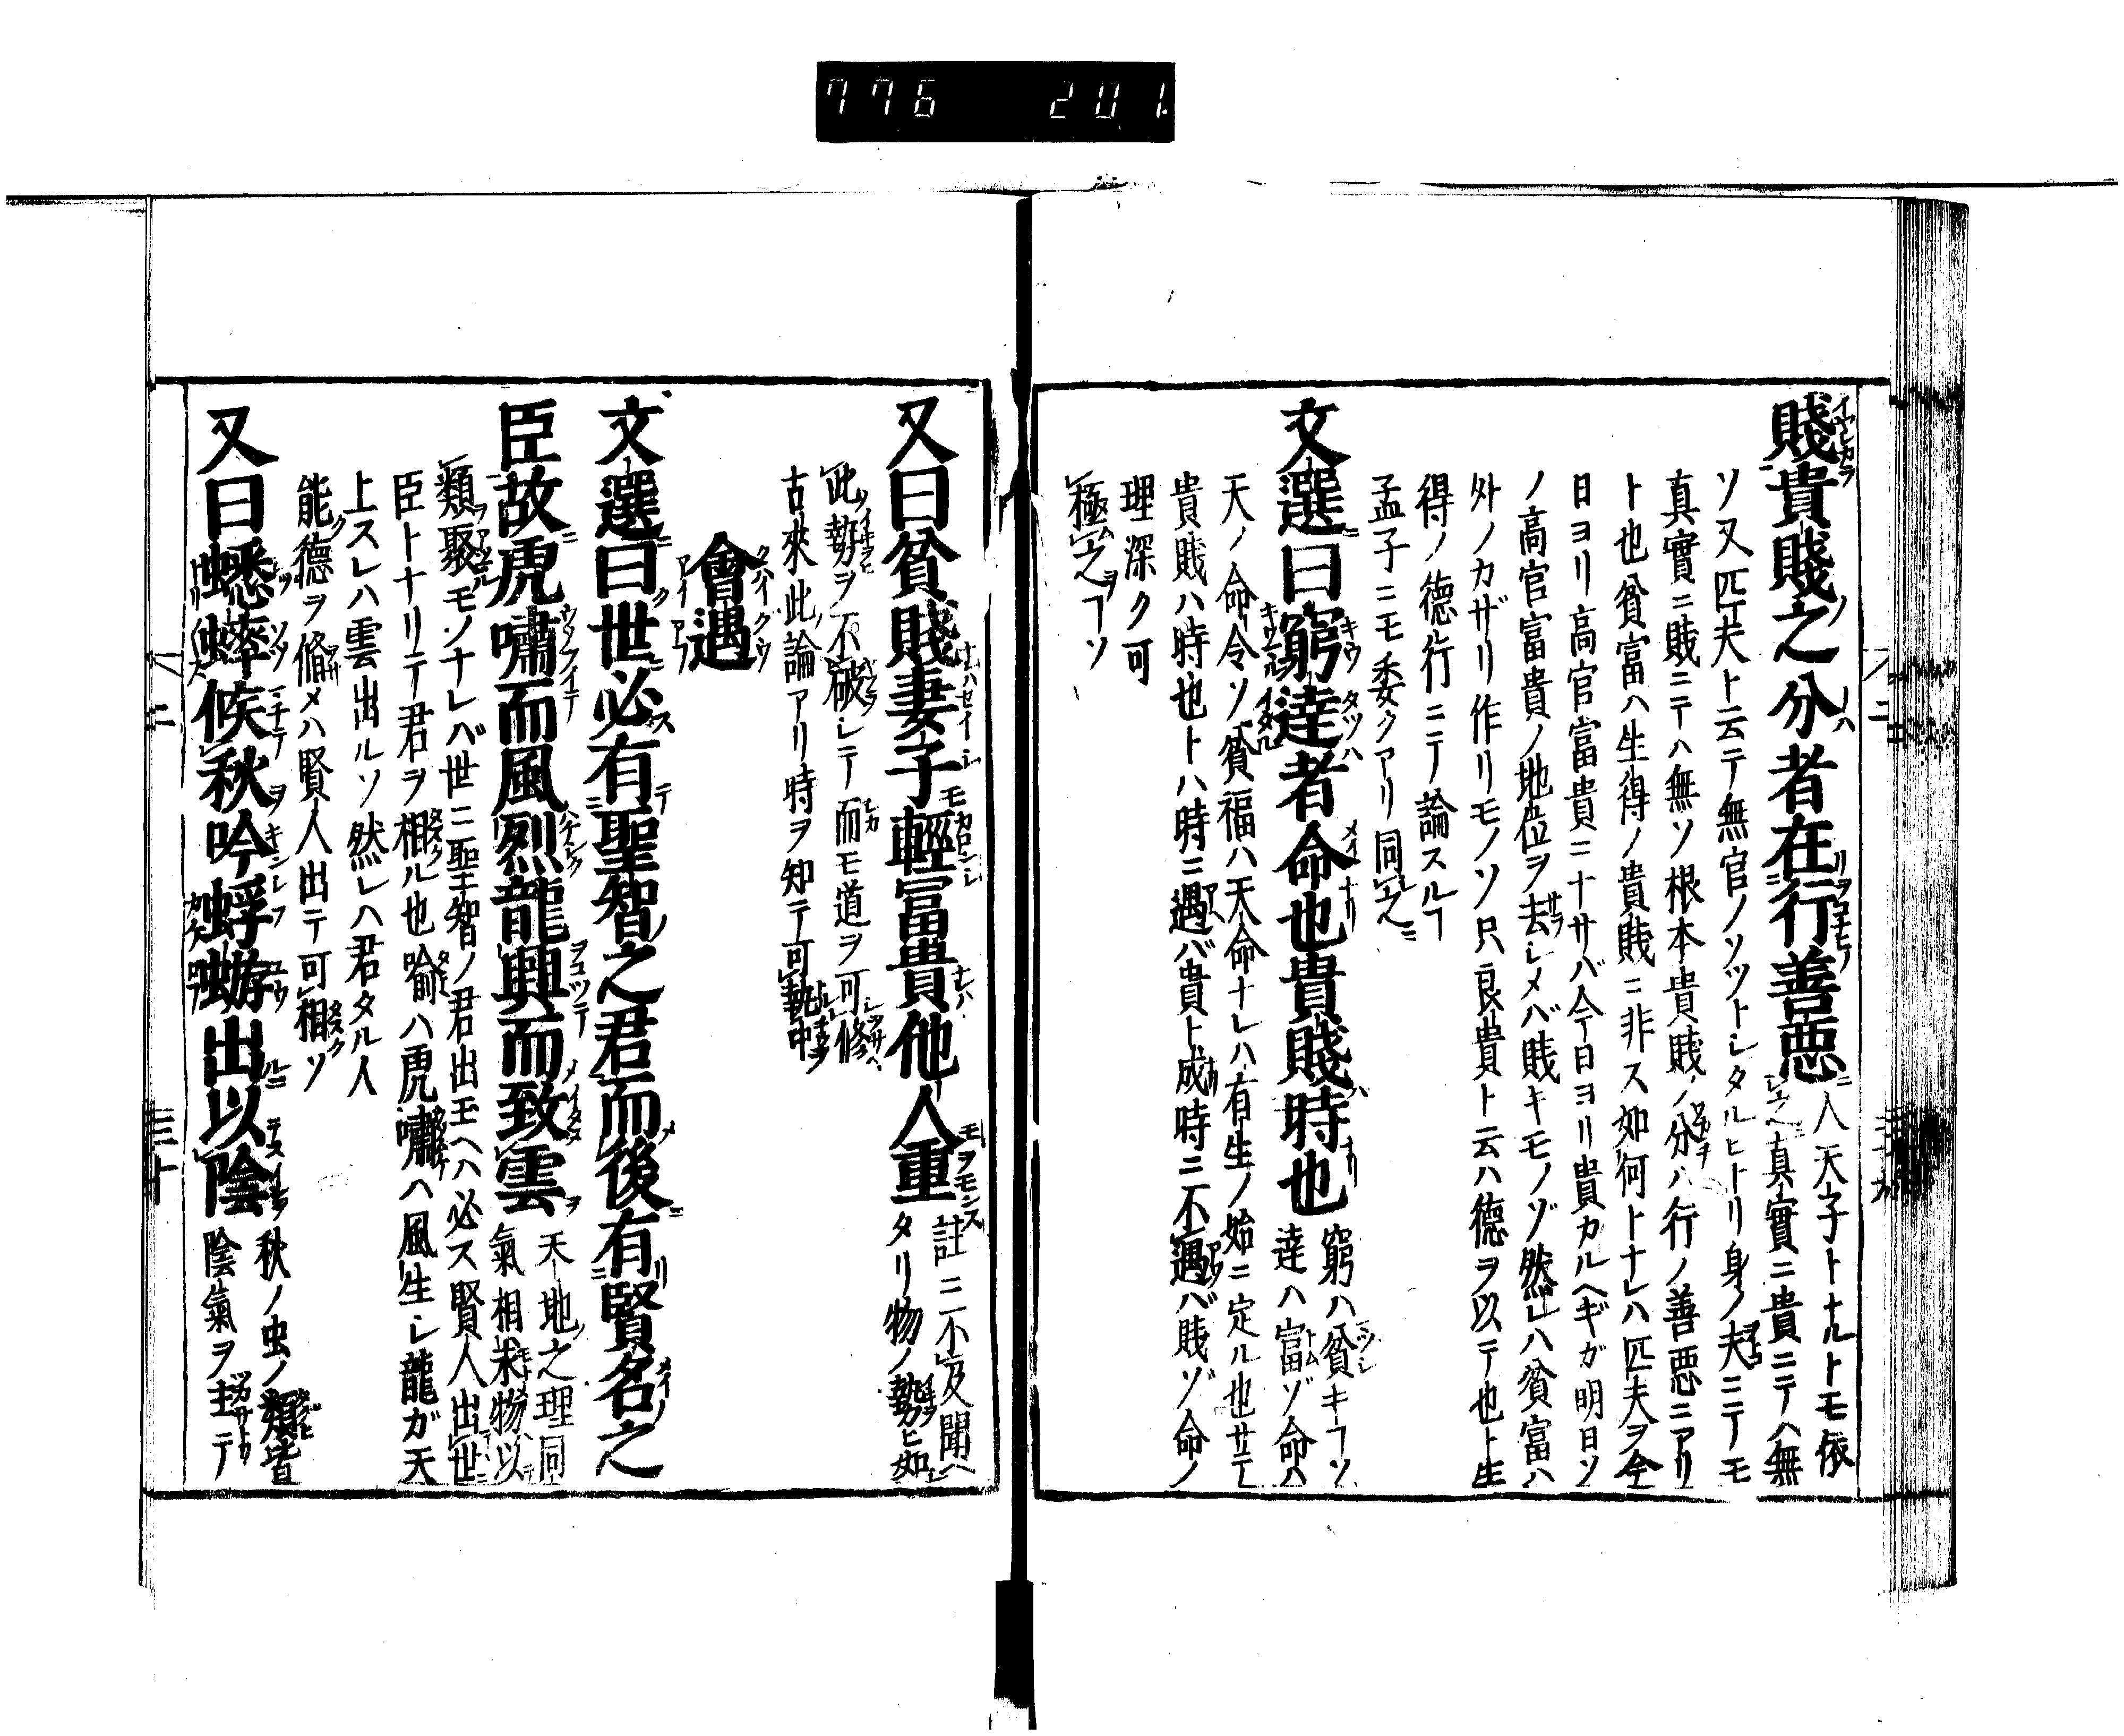 776 201.
賤貴賤之分者在行善悪 人天子トナルトモ依
レ之真實ニ貴ニテハ無
ソ又匹夫ト云テ無官ノソツトシタルヒトリ身ノ夫ニテモ
真實ニ賤ニテハ無ソ根本貴賤ノ分ハ行ノ善悪ニアリ
ト也貧富ハ生得ノ貴賤ニ非ス如何トナレハ匹夫ヲ今
日ヨリ高官富貴ニナサバ今日ヨリ貴カルヘギガ明日ソ
ノ高官富貴ノ地位ヲ去シメバ賤キモノゾ然レハ貧富ハ
外ノカザリ作リモノソ只良貴ト云ハ德ヲ以テ也ト生
得ノ德行ニテ論スルヿ
孟子ニモ委クアリ同レ之
文選曰窮達者命也貴賤時也 窮ハ貧キヿソ
達ハ富ゾ命ハ
天ノ命令ソ貧福ハ天命ナレハ有生ノ始ニ定ル也サテ
貴賤ハ時也トハ時ニ遇バ貴ト成時ニ不遇バ賤ゾ命ノ
理深ク可
極之ヿソ
又曰貧賤妻子輕冨貴他人重 註ニ不及聞ヘ
タリ物ノ勢ヒ如
此勢ヲ不破シテ而モ道ヲ可修
古來此論アリ時ヲ知テ可執中
會遇
文選曰世必有聖智之君而後有賢名之
臣故虎嘯而風烈龍興而致雲 天地之理同
氣相求物以
類聚モノナレバ世ニ聖智ノ君出玉ヘハ必ス賢人出世
臣トナリテ君ヲ相ル也喩ハ虎嘯ハ風生シ龍ガ天
上スレハ雲出ルソ然レハ君タル人
能德ヲ脩メハ賢人出テ可相ソ
又曰蟋蟀候秋吟蜉蝣出以陰 秋ノ虫ノ類皆
陰氣ヲ主テ